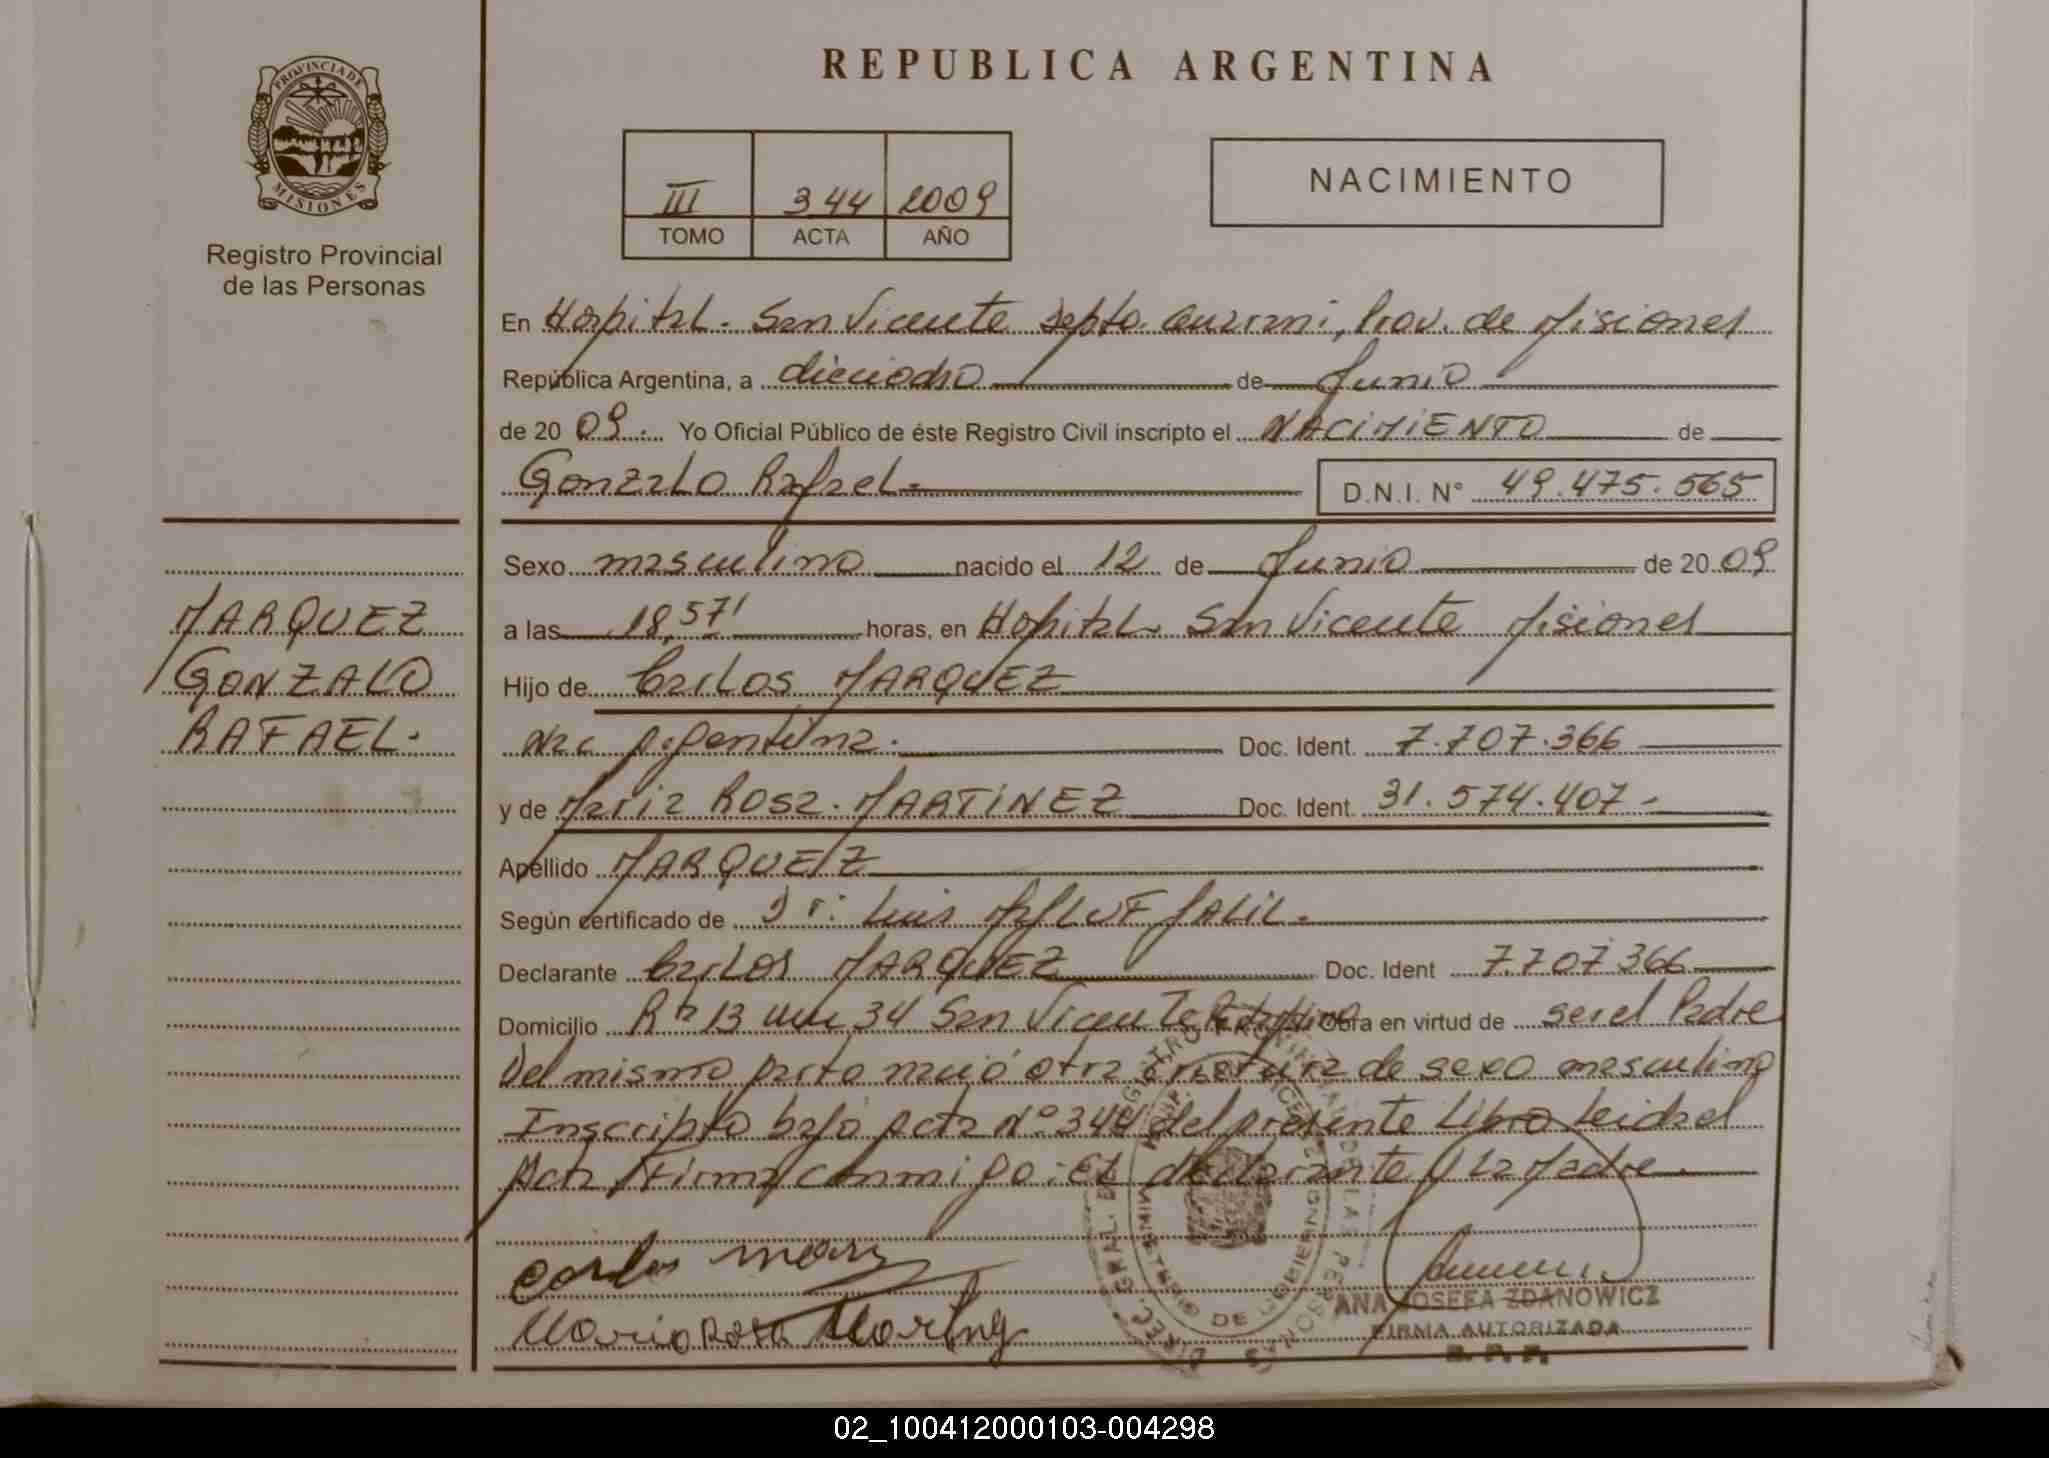 REPUBLICA ARGENTINA
PROVINCIA DE
MISIONES
Registro Provincial
de las Personas
III 344 2009
TOMO ACTA AÑO
NACIMIENTO
En Hospital. San Vicente Depto. Guarani, Prov. de Misiones
República Argentina, a dieciocho de Junio
de 20 09. Yo Oficial Público de éste Registro Civil inscripto el NACIMIENTO de
Gonzalo Rafael.
D.N.I. N° 49.475.565
MARQUEZ
GONZALO
RAFAEL.
Sexo masculino nacido el 12 de Junio de 20 09
a las 18,57' horas, en Hospital. San Vicente Misiones
Hijo de Carlos MARQUEZ
Nac Argentina. Doc. Ident. 7.707.366
y de Maria Rosa. MARTINEZ Doc. Ident. 31.574.407.-
Apellido MARQUEZ
Según certificado de Dr. Luis JALIL.
Declarante Carlos MARQUEZ Doc. Ident 7.707.366
Domicilio 13 34 San Vicente Obra en virtud de ser el Padre
Del mismo parto nació otra criatura de sexo masculino
Inscripto bajo Acta N° del presente Libro Leida el
Acta Firma conmigo: El declarante y la Madre.
Carlos
Maria Rosa
DIREC. GRAL. DE LAS PERSONAS
MINISTERIO DE GOBIERNO
ANA JOSEFA ZDANOWICZ
FIRMA AUTORIZADA
R. P. P.
02_100412000103-004298